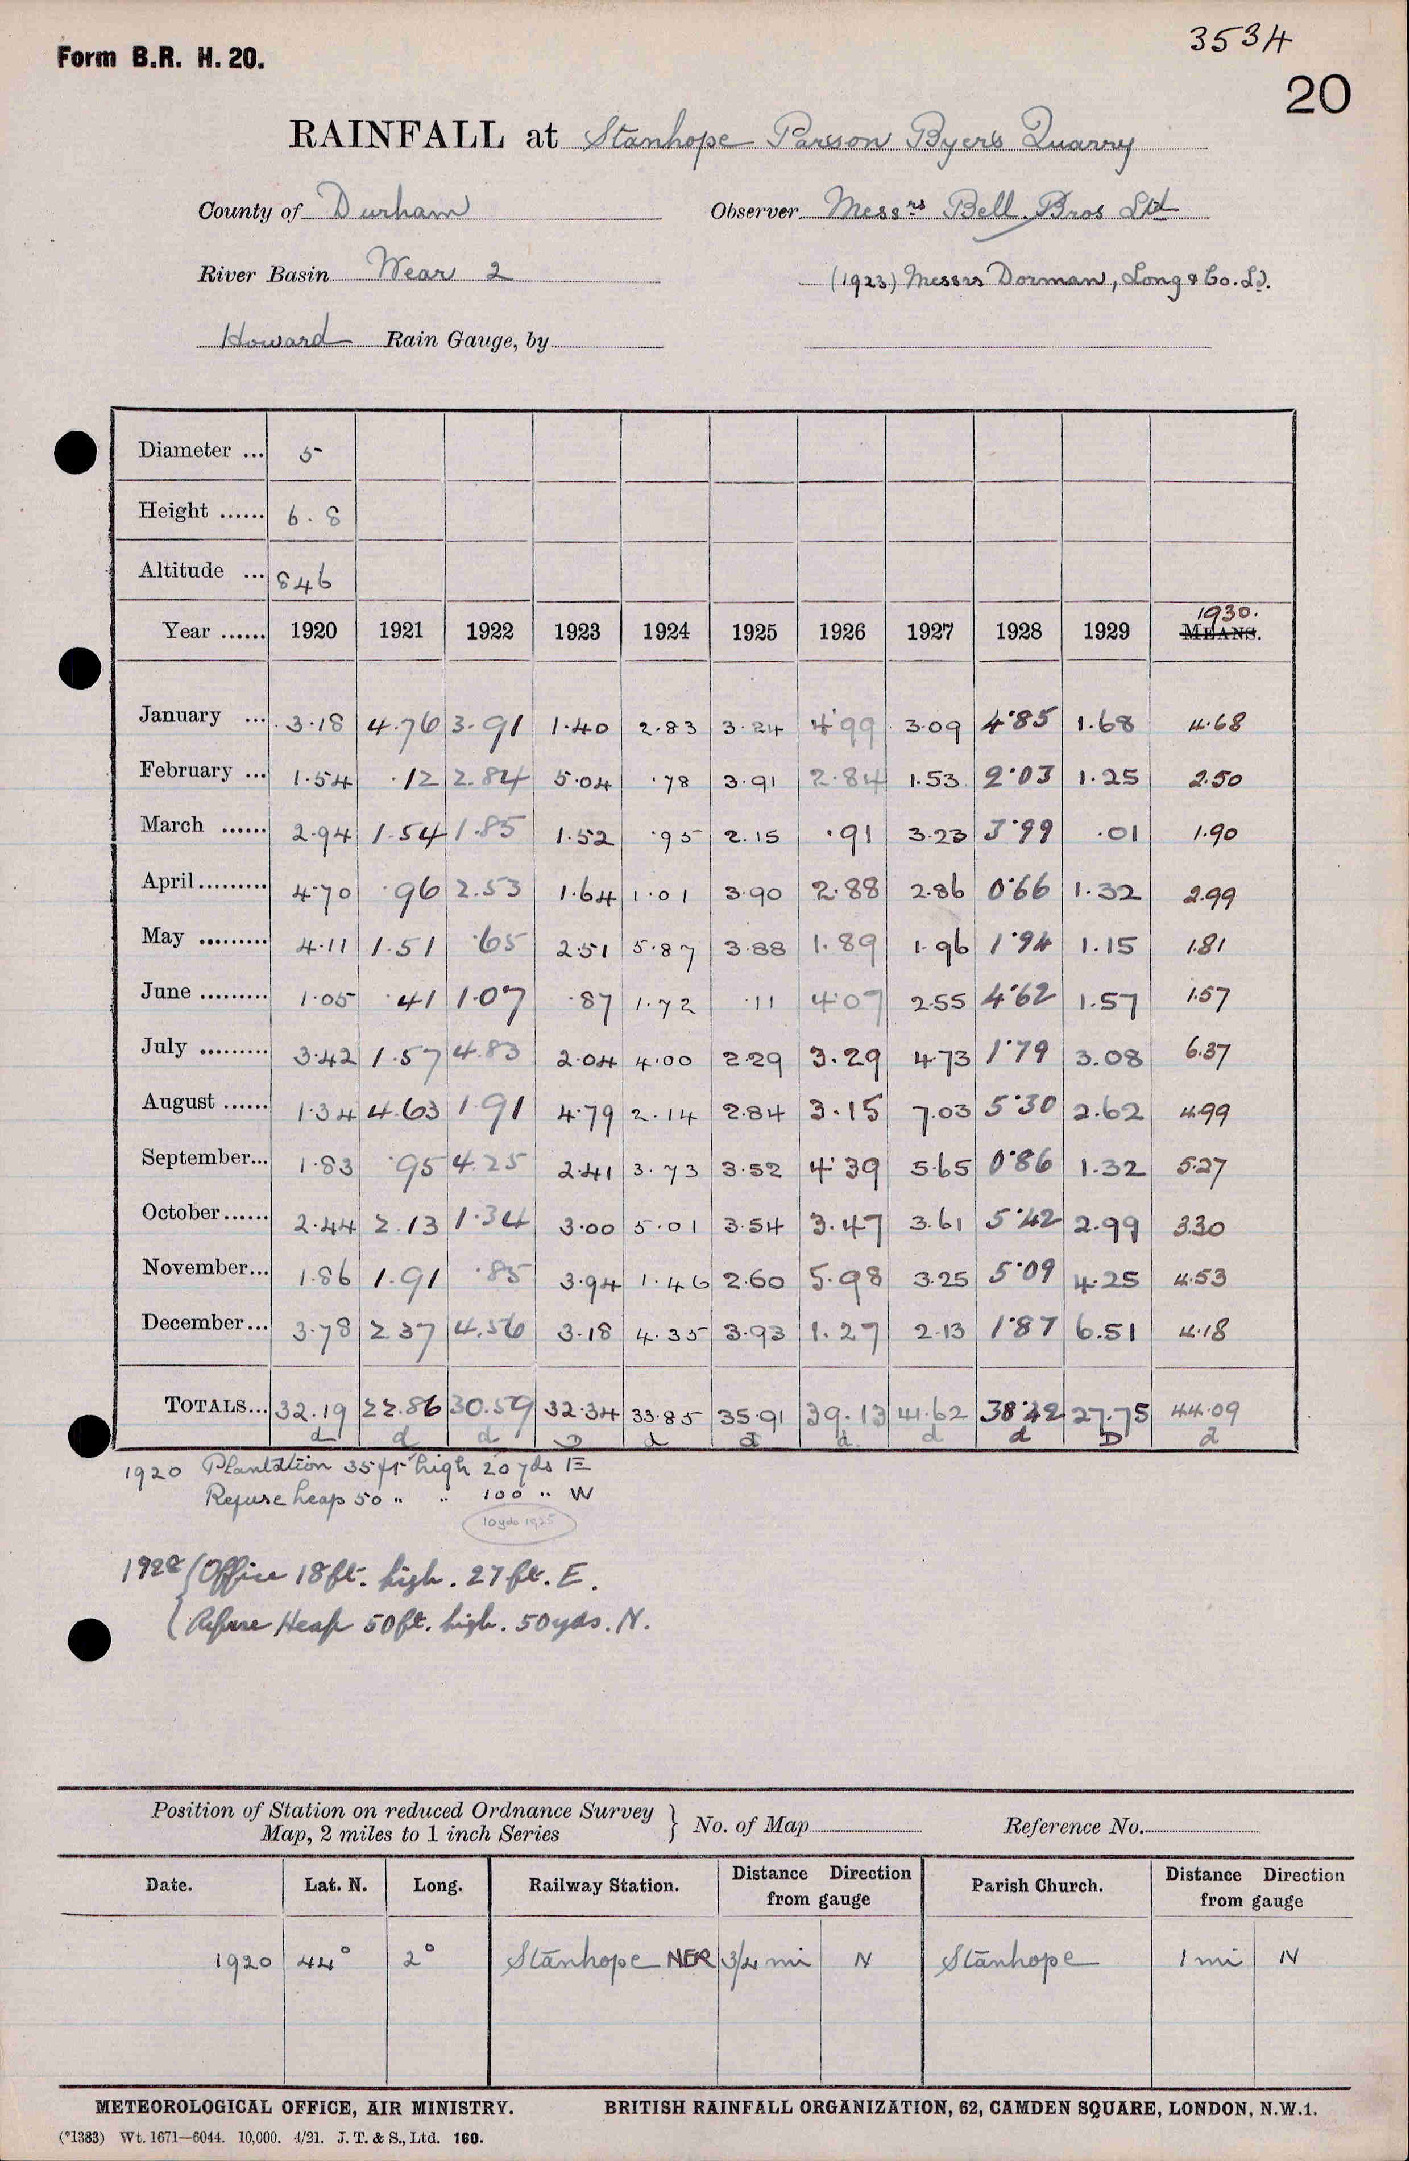 3534
Form B.R. H. 20.
20
RAINFALL at Stanhope Parson Byers Quarry
County of Durham Observer Messrs Bell Bros Ltd
River Basin Wear 2 (1923) Messrs Dorman, Long & Co. Ld.
Howard Rain Gauge, by
Diameter ... 5
Height ...... 6.8
Altitude ... 846
1930.
Year ...... 1920 1921 1922 1923 1924 1925 1926 1927 1928 1929 MEANS.
January ... 3.18 4.76 3.91 1.40 2.83 3.24 4.99 3.09 4.85 1.68 4.68
February ... 1.54 .12 2.84 5.04 .78 3.91 2.84 1.53 2.03 1.25 2.50
March ...... 2.94 1.54 1.85 1.52 .95 2.15 .91 3.23 3.99 .01 1.90
April......... 4.70 .96 2.53 1.64 1.01 3.90 2.88 2.86 0.66 1.32 2.99
May ......... 4.11 1.51 .65 2.51 5.87 3.88 1.89 1.96 1.94 1.15 1.81
June ......... 1.05 .41 1.07 .87 1.72 .11 4.07 2.55 4.62 1.57 1.57
July ......... 3.42 1.57 4.83 2.04 4.00 2.29 3.29 4.73 1.79 3.08 6.37
August ...... 1.34 4.63 1.91 4.79 2.14 2.84 3.15 7.03 5.30 2.62 4.99
September... 1.83 .95 4.25 2.41 3.73 3.52 4.39 5.65 0.86 1.32 5.27
October...... 2.44 2.13 1.34 3.00 5.01 3.54 3.47 3.61 5.42 2.99 3.30
November... 1.86 1.91 .85 3.94 1.46 2.60 5.98 3.25 5.09 4.25 4.53
December... 3.78 2.37 4.56 3.18 4.35 3.93 1.27 2.13 1.87 6.51 4.18
TOTALS... 32.19 22.86 30.59 32.34 33.85 35.91 39.13 41.62 38.42 27.75 44.09
d d d D d d d d d D d
1920 Plantation 35 ft high 20 yds E
Refuse heap 50 " " 100 " W
10 yds 1925
1928 { Office 18ft. high. 27 ft. E.
{ Refuse Heap 50ft. high. 50yds. N.
Position of Station on reduced Ordnance Survey } No. of Map Reference No.
Map, 2 miles to 1 inch Series
Date. Lat. N. Long. Railway Station. Distance Direction from gauge Parish Church. Distance Direction from gauge
1920 44° 2° Stanhope NER 3/4 mi N Stanhope 1 mi N
METEOROLOGICAL OFFICE, AIR MINISTRY. BRITISH RAINFALL ORGANIZATION, 62, CAMDEN SQUARE, LONDON, N.W.1.
(*1383) Wt. 1671—6044. 10,000. 4/21. J. T. & S., Ltd. 160.